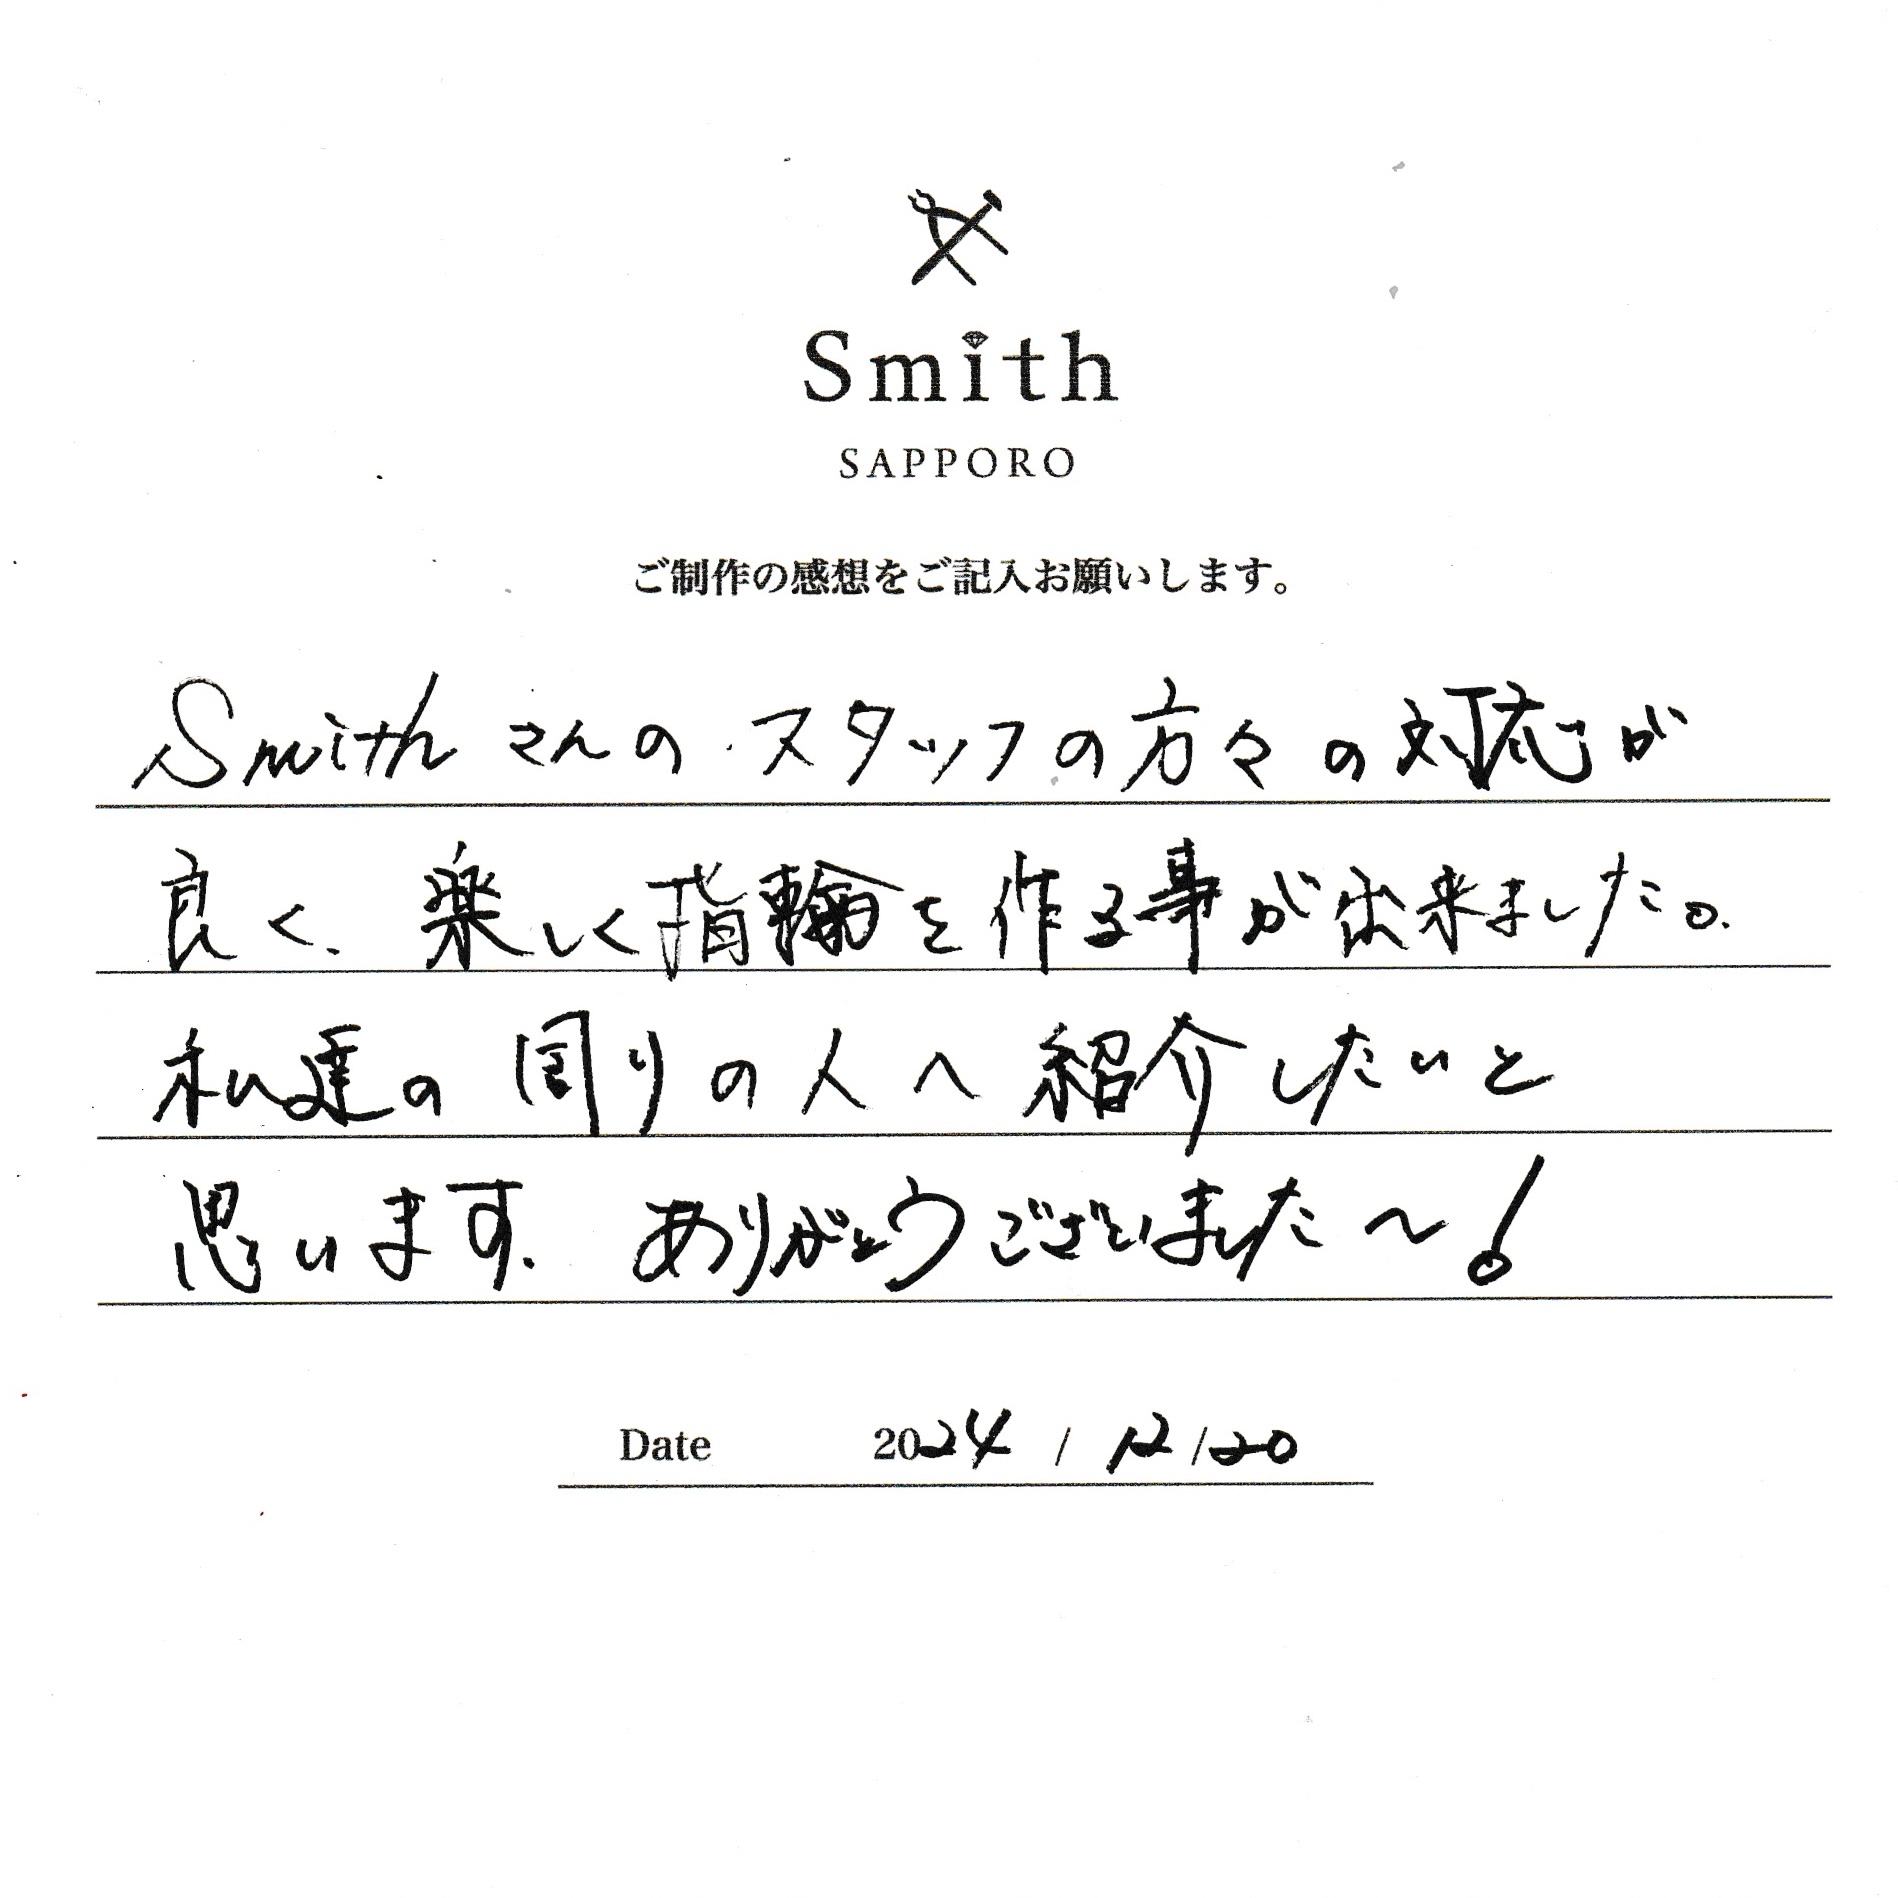 Smith
SAPPORO
ご制作の感想をご記入お願いします。
Smithさんのスタッフの方々の対応が
良く、楽しく指輪を作る事が出来ました。
私達の周りの人へ紹介したいと
思います。ありがとうございました〜!
Date 2024 / 12 / 20